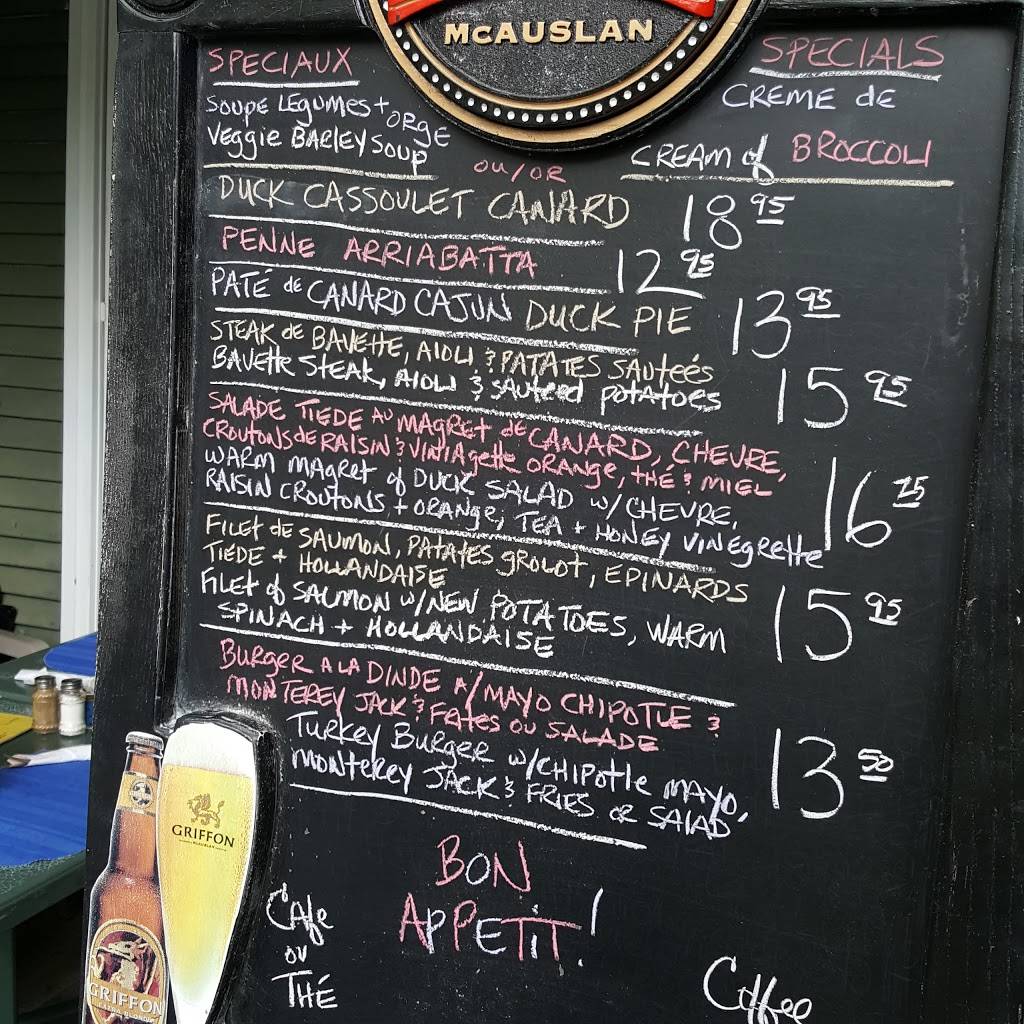 McAUSLAN
SPECIAUX
SPECIALS
SOUPE LEGUMES + ORGE
Veggie BARLEY SOUP
OU/OR
CREME de
CREAM of BROCCOLI
DUCK CASSOULET CANARD 18 95
PENNE ARRIABATTA 12 95
PATÉ de CANARD CAJUN DUCK PIE 13 95
STEAK de BAVETTE, AIOLI & PATATES SAUTEÉS
BAVETTE STEAK, AIOLI & SAUTEED POTATOES 15 95
SALADE TIEDE AU MAGRET de CANARD, CHEVRE,
CROUTONS de RAISIN & VINIAGETTE ORANGE, THÉ & MIEL
WARM MAGRET of DUCK SALAD W/ CHEVRE,
RAISIN CROUTONS + ORANGE, TEA + HONEY VINEGRETTE 16 75
FILET de SAUMON, PATATES GROLOT, EPINARDS
TIEDE + HOLLANDAISE
FILET of SALMON W/ NEW POTATOES, WARM
SPINACH + HOLLANDAISE 15 95
BURGER A LA DINDE A/ MAYO CHIPOTLE &
MONTEREY JACK & FRITES OU SALADE
TURKEY BURGER W/ CHIPOTLE MAYO,
MONTEREY JACK & FRIES OR SALAD 13 50
BON
APPETIT!
CAFE
OU
THÉ
Coffee
GRIFFON
GRIFFON